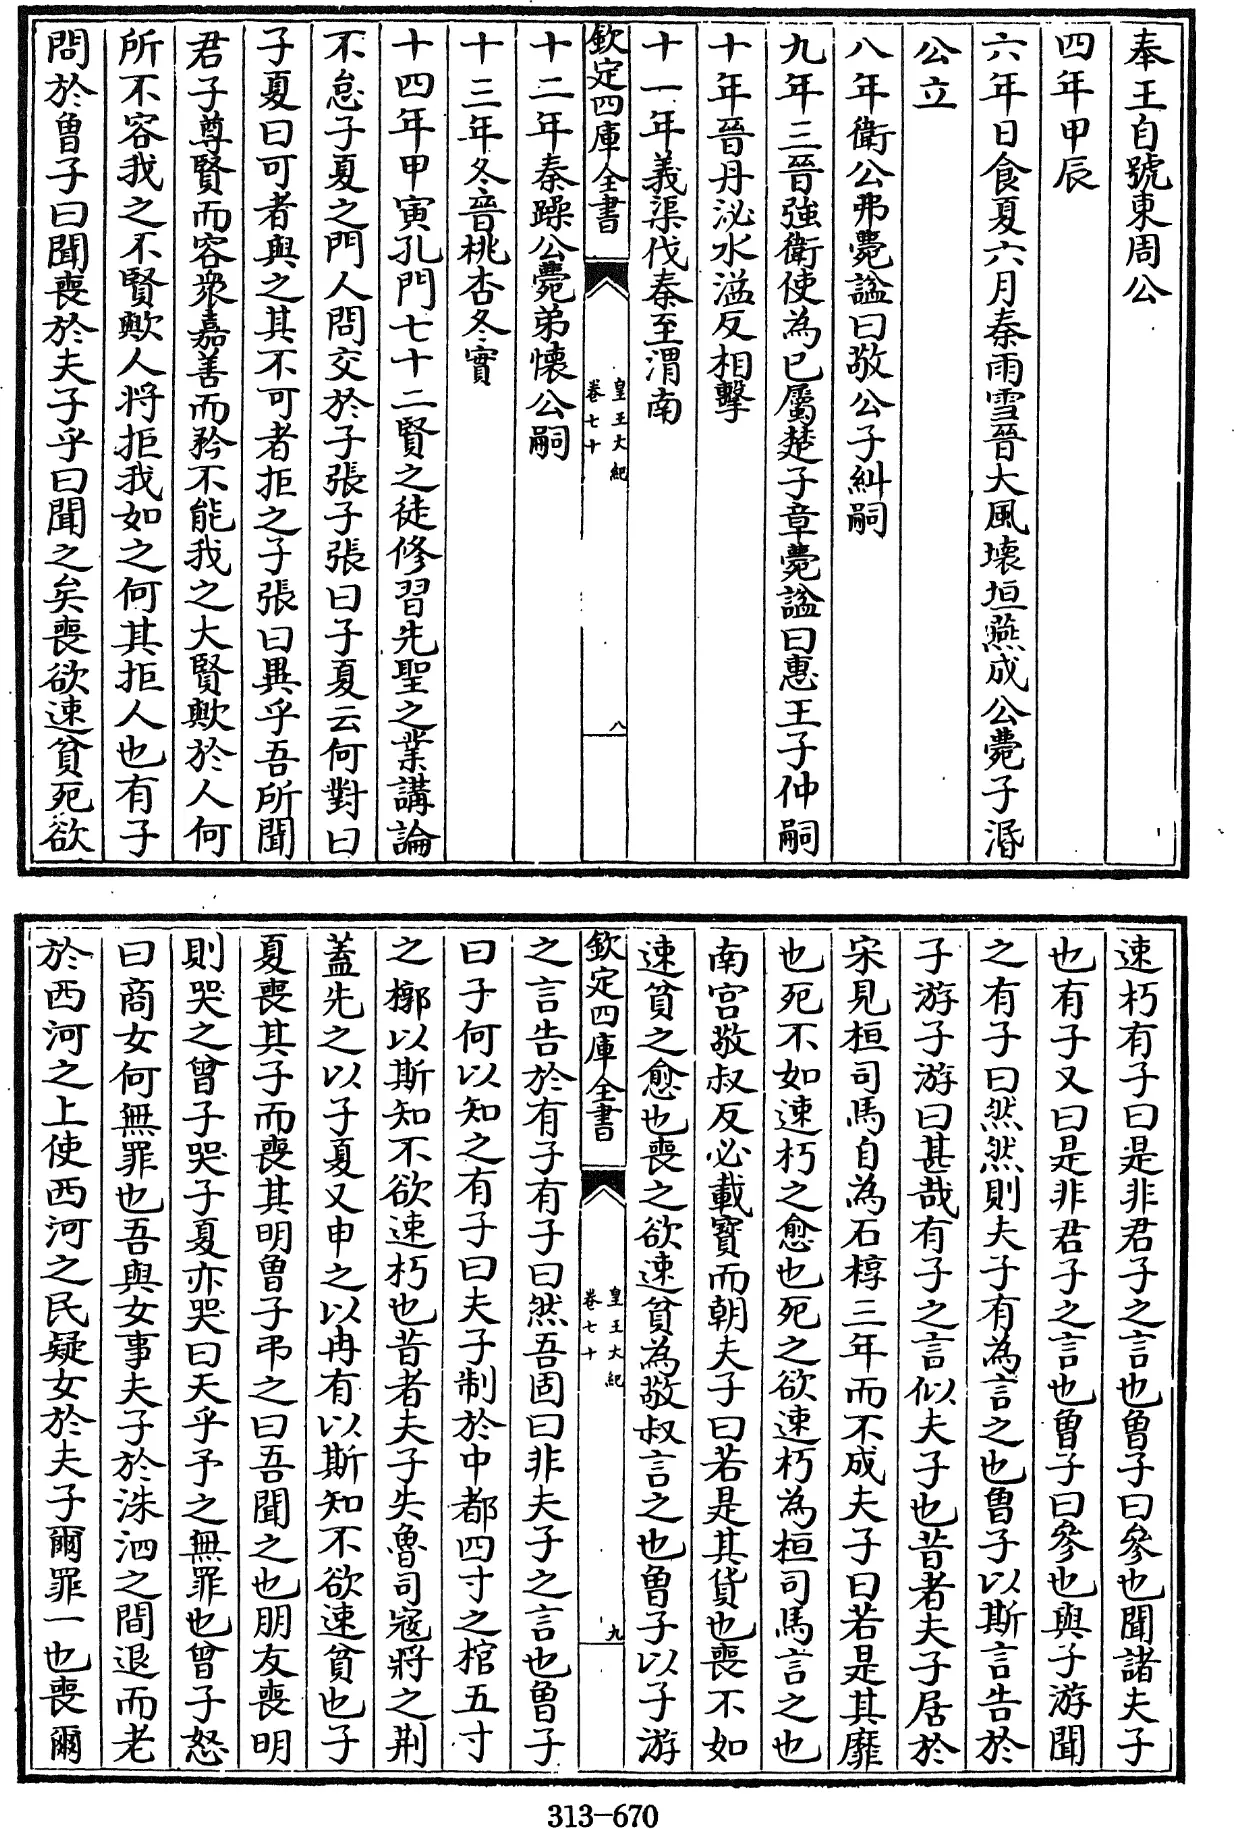 奉王自號東周公
四年甲辰
六年日食夏六月秦雨雪晉大風壞垣燕成公薨子湣
公立
八年衛公弗薨諡曰敬公子糾嗣
九年三晉強衛使為已屬楚子章薨諡曰惠王子仲嗣
十年晉丹沁水溢反相擊
十一年義渠伐秦至渭南
欽定四庫全書
皇王大紀
卷七十
八
十二年秦躁公薨弟懷公嗣
十三年冬晉桃杏冬實
十四年甲寅孔門七十二賢之徒修習先聖之業講論
不怠子夏之門人問交於子張子張曰子夏云何對曰
子夏曰可者與之其不可者拒之子張曰異乎吾所聞
君子尊賢而容衆嘉善而矜不能我之大賢歟於人何
所不容我之不賢歟人將拒我如之何其拒人也有子
問於曾子曰聞喪於夫子乎曰聞之矣喪欲速貧死欲
速朽有子曰是非君子之言也曾子曰參也聞諸夫子
也有子又曰是非君子之言也曾子曰參也與子游聞
之有子曰然然則夫子有為言之也曾子以斯言告於
子游子游曰甚哉有子之言似夫子也昔者夫子居於
宋見桓司馬自為石椁三年而不成夫子曰若是其靡
也死不如速朽之愈也死之欲速朽為桓司馬言之也
南宮敬叔反必載寳而朝夫子曰若是其貨也喪不如
速貧之愈也喪之欲速貧為敬叔言之也曾子以子游
欽定四庫全書
皇王大紀
卷七十
九
之言告於有子有子曰然吾固曰非夫子之言也曾子
曰子何以知之有子曰夫子制於中都四寸之棺五寸
之槨以斯知不欲速朽也昔者夫子失魯司寇將之荆
蓋先之以子夏又申之以冉有以斯知不欲速貧也子
夏喪其子而喪其明曾子弔之曰吾聞之也朋友喪明
則哭之曾子哭子夏亦哭曰天乎予之無罪也曾子怒
曰商女何無罪也吾與女事夫子於洙泗之間退而老
於西河之上使西河之民疑女於夫子爾罪一也喪爾
313-670